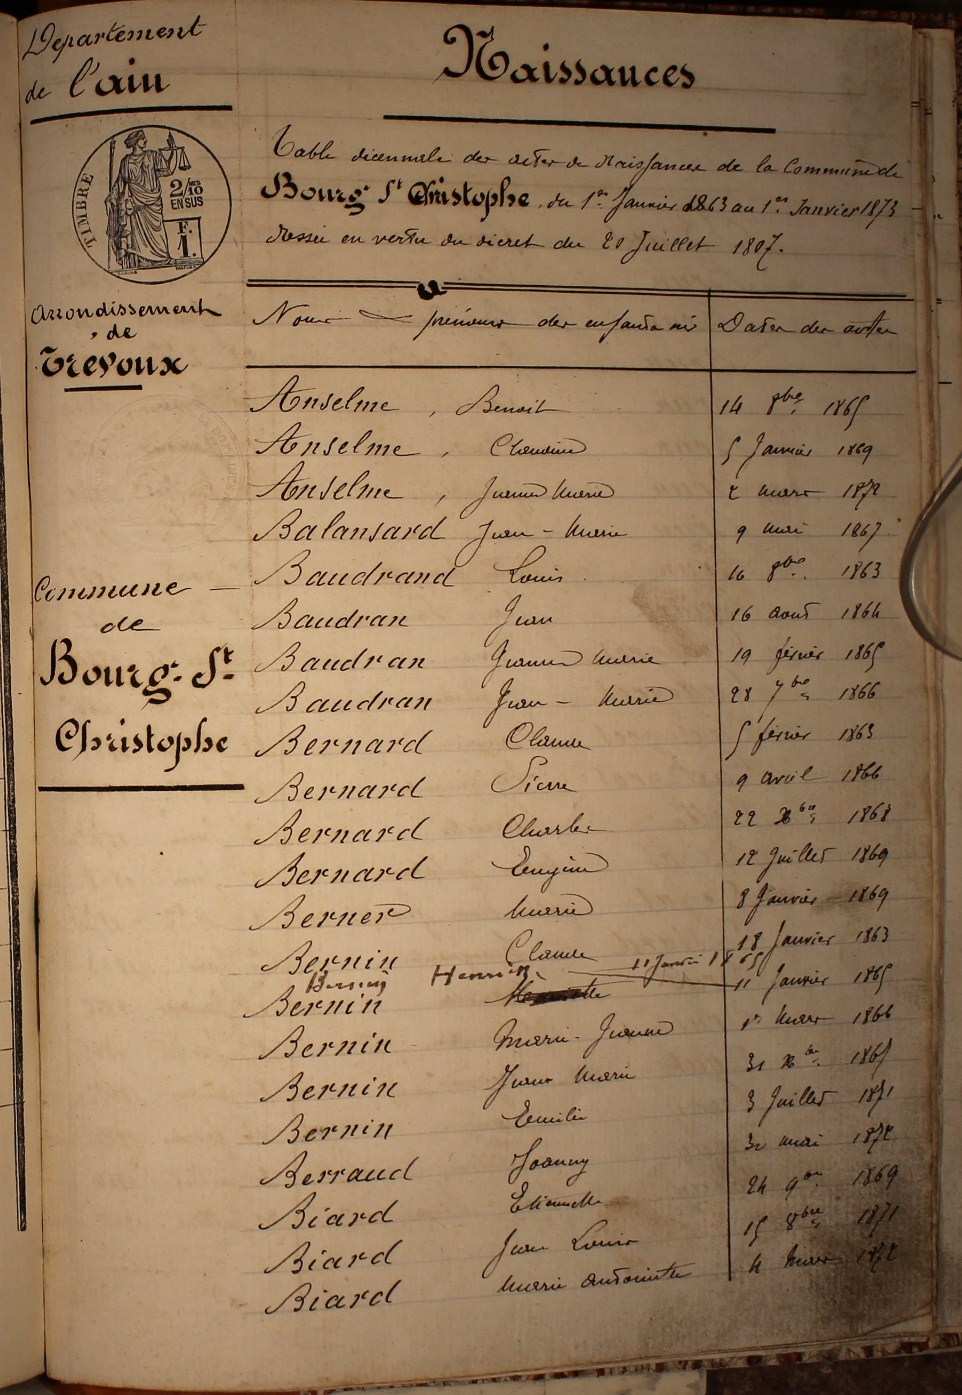 Département
de l'ain
TIMBRE
2/10 EN SUS
F. 1.
Arrondissement
de
Trevoux
Commune
de
Bourg. St.
Christophe
Naissances
Table décennale des actes de Naissances de la Commune de
Bourg St Christophe, du 1er Janvier 1863 au 1er Janvier 1873
dressée en vertu du décret du 20 Juillet 1807.
Noms & prénoms des enfants nés Dates des actes
Anselme, Benoit 14 8bre 1865
Anselme, Claudine 5 Janvier 1869
Anselme, Jeanne Marie 2 mars 1872
Balansard Jean-Marie 9 mai 1867
Baudrand Louis 16 8bre 1863
Baudran Jean 16 aout 1864
Baudran Jeanne Marie 19 février 1865
Baudran Jean-Marie 28 7bre 1866
Bernard Claude 5 février 1863
Bernard Pierre 9 avril 1866
Bernard Charles 22 Xbre 1868
Bernard Eugénie 12 Juillet 1869
Berner Marie 8 Janvier 1869
Bernin Claude 18 Janvier 1863
Bernin Henri 11 Janvier 1865
Bernin 11 Janvier 1865
Bernin Marie-Jeanne 1er Mars 1866
Bernin Jeanne Marie 31 Xbre 1867
Bernin Emilie 3 Juillet 1871
Berraud Joanny 30 mai 1872
Biard Etiennette 24 9bre 1869
Biard Jean Louis 15 8bre 1871
Biard Marie antoinette 4 Mars 1872